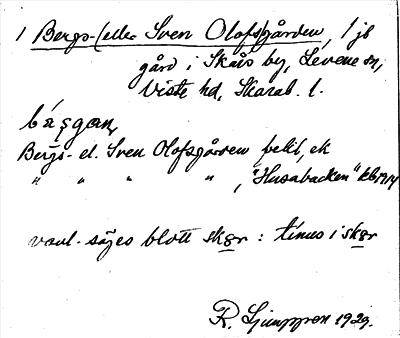 1 Bergs- (eller Sven Olofs)gården, 1 jb
gård i Skårs by, Levene sn,
Viste hd, Skarab. l.
bǽsgan,
Bergs- el. Sven Olofsgården felit, ek
" " " " " , "Husabacken" kb 1914
vanl. säges blott skør : tinus i skør
R. Ljunggren 1929.